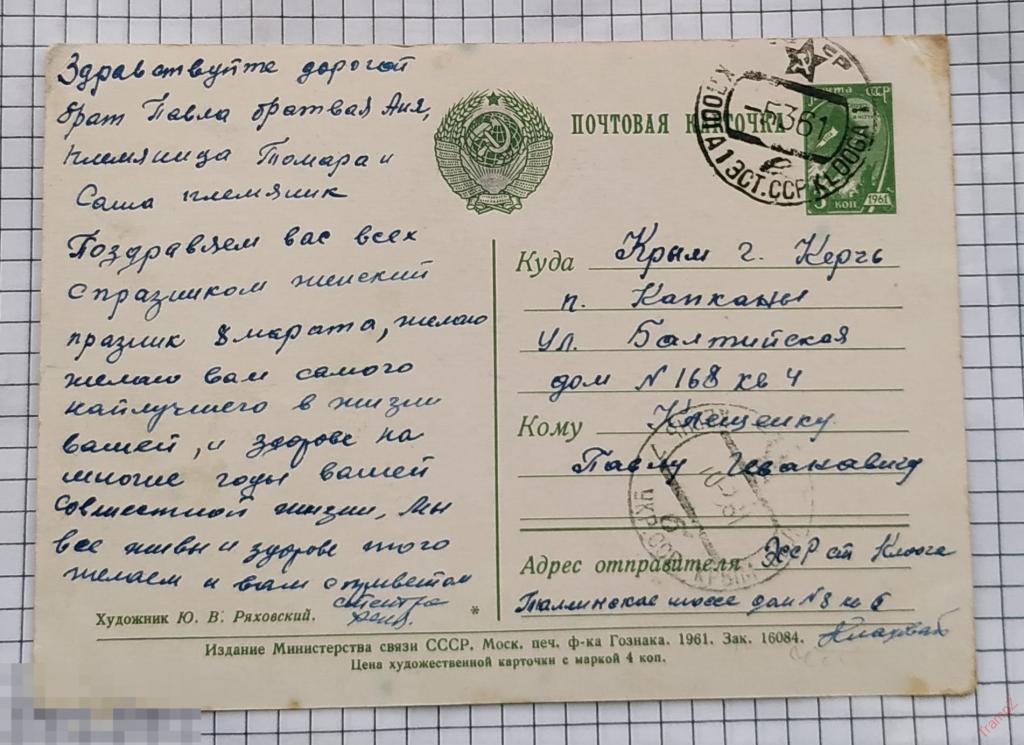 Здравствуйте дорогой
брат Павла братвая Аня,
племяница Томара и
Саша племяник
Поздравяем вас всех
с празником женский
празник 8 марата, желаю
желаю вам самого
найлучшего в жизни
вашей, и здорове на
многие годы вашей
совместной жизни, Мы
все живы и здорове того
желаем и вам с приветом
сестра
Художник Ю. В. Ряховский.
*
ПОЧТОВАЯ КАРТОЧКА
5361
KLOOGA 1 ЭСТ.ССР KLOOGA
почта СССР
коп 1961
Куда Крым г. Керчь
п. Капканы
ул. Балтийская
дом № 168 кв 4
Кому Клещенку
Павлу
УКР.ССР КРЫМ
Адрес отправителя ЭССР ст Клоога
Таллинское шоссе дом № 8 кв 6
Издание Министерства связи СССР. Моск. печ. ф-ка Гознака. 1961. Зак. 16084.
Цена художественной карточки с маркой 4 коп.